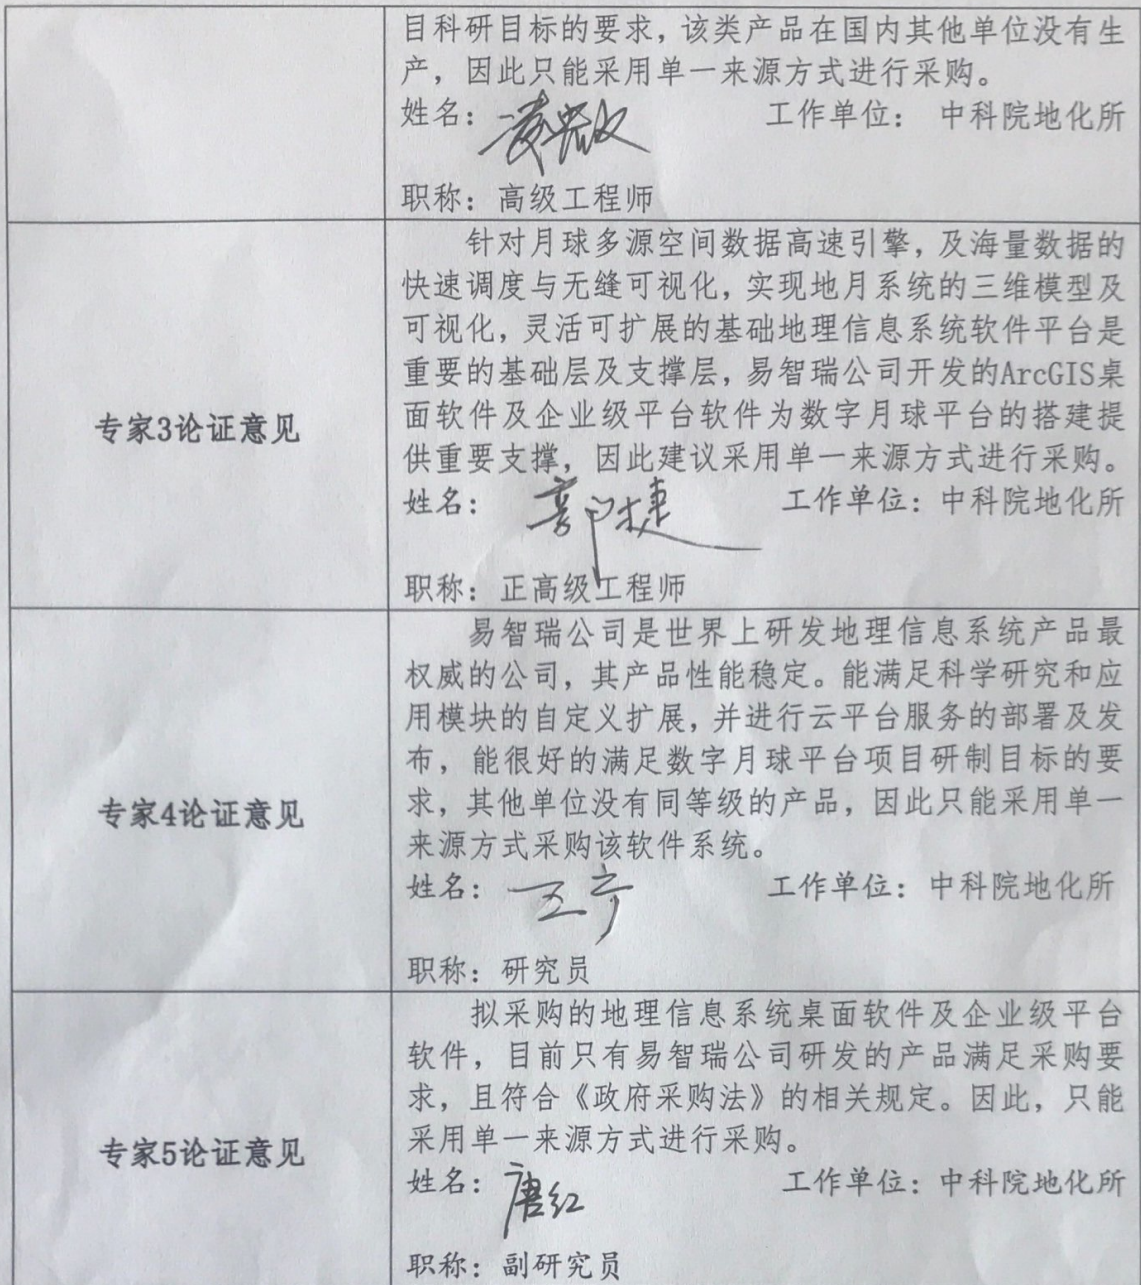 目科研目标的要求，该类产品在国内其他单位没有生
产，因此只能采用单一来源方式进行采购。
姓名： 工作单位： 中科院地化所
职称：高级工程师
专家3论证意见
针对月球多源空间数据高速引擎，及海量数据的
快速调度与无缝可视化，实现地月系统的三维模型及
可视化，灵活可扩展的基础地理信息系统软件平台是
重要的基础层及支撑层，易智瑞公司开发的ArcGIS桌
面软件及企业级平台软件为数字月球平台的搭建提
供重要支撑，因此建议采用单一来源方式进行采购。
姓名： 郭捷 工作单位：中科院地化所
职称：正高级工程师
专家4论证意见
易智瑞公司是世界上研发地理信息系统产品最
权威的公司，其产品性能稳定。能满足科学研究和应
用模块的自定义扩展，并进行云平台服务的部署及发
布，能很好的满足数字月球平台项目研制目标的要
求，其他单位没有同等级的产品，因此只能采用单一
来源方式采购该软件系统。
姓名： 工作单位：中科院地化所
职称：研究员
专家5论证意见
拟采购的地理信息系统桌面软件及企业级平台
软件，目前只有易智瑞公司研发的产品满足采购要
求，且符合《政府采购法》的相关规定。因此，只能
采用单一来源方式进行采购。
姓名：唐红 工作单位：中科院地化所
职称：副研究员